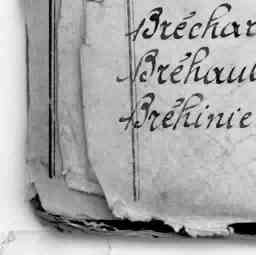 Bréchar
Bréhaul
Bréhinie